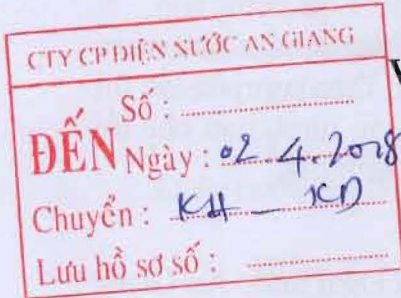 CTY CP ĐIỆN NƯỚC AN GIANG
Số : ..........................
ĐẾN Ngày : 02.4.2018
Chuyển : KH _ KD
Lưu hồ sơ số : ....................